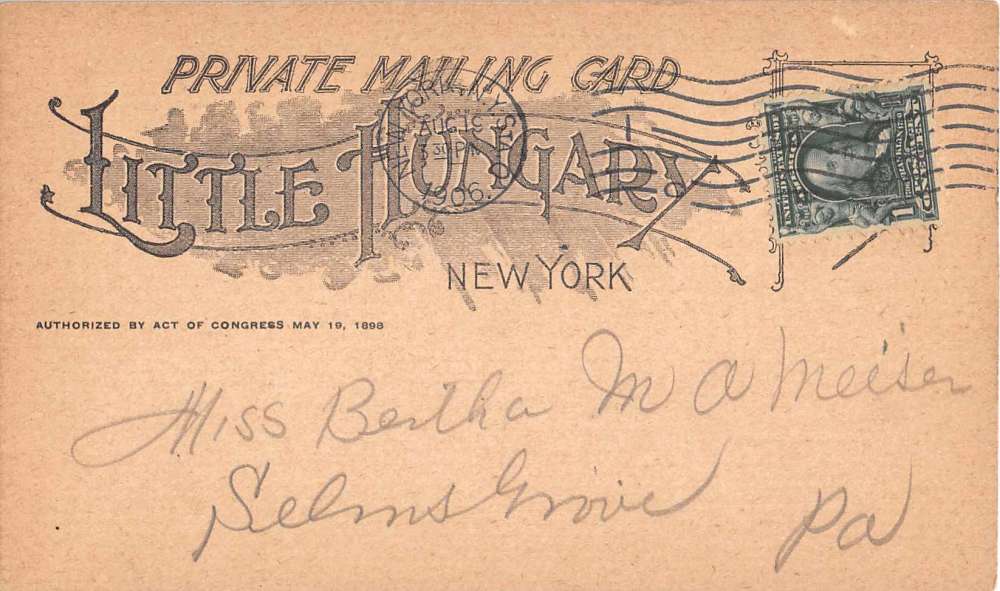 PRIVATE MAILING CARD
LITTLE HUNGARY
NEW YORK
NEW YORK, N.Y. STA. O
AUG 15
30 PM
1906
AUTHORIZED BY ACT OF CONGRESS MAY 19, 1898
Miss Bertha M A Meiser
Selins Grove Pa